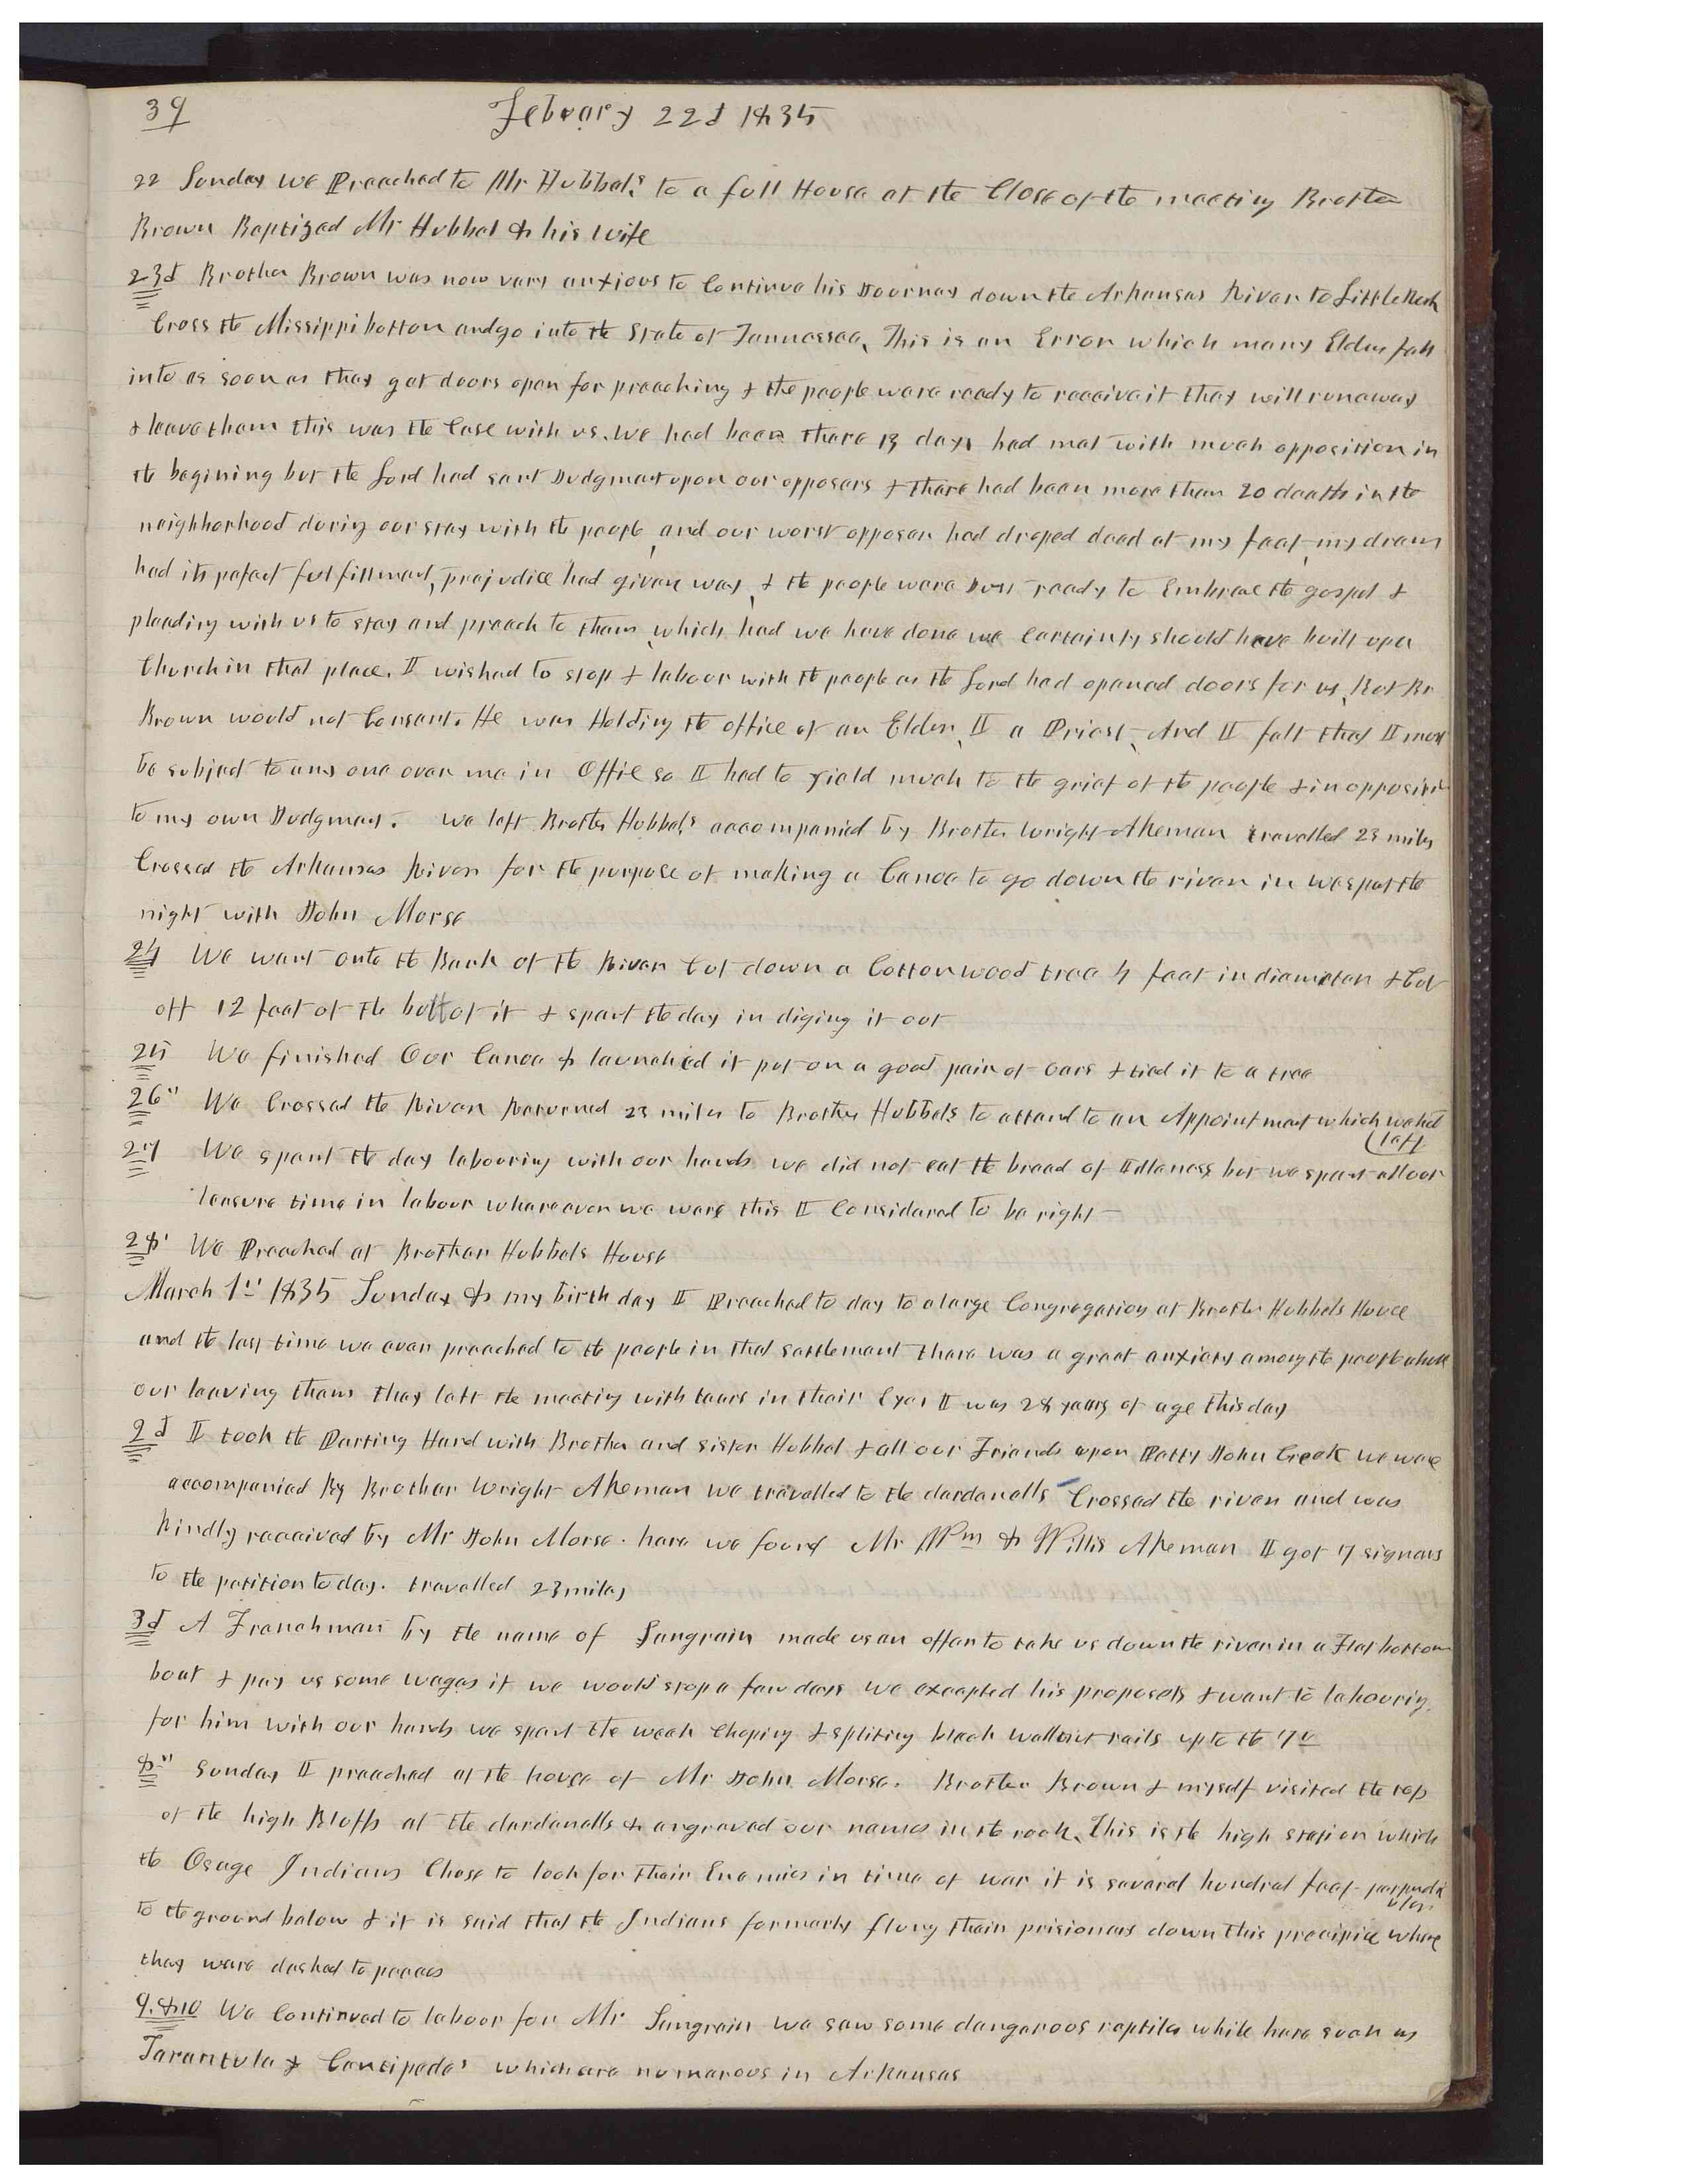 39 Febuary 22d 1835
22 Sunday we Preached to Mr Hubbel's to a full House at the Close of the meeting Brother
Brown Baptized Mr Hubbel & his wife
23d Brother Brown was now very anxious to Continue his Journey down the Arkansas River to Little Rock
Cross the Missippi bottom and go into the State of Tennessee, This is an Error which many Elders fall
into as soon as they get doors open for preaching & the people were ready to receive it they will run away
& leave them this was the Case with us. We had been there 19 days had met with much opposition in
the begining but the Lord had sent Judgment upon our opposers & there had been more than 20 deaths in the
neighborhood during our stay with the people, and our worst opposer had droped dead at my feet, my dream
had its pefect fulfillment, prejudice had given way, & the people were Just ready to Embrace the gospel &
pleading with us to stay and preach to them, which, had we have done we Certainly should have built up a
Church in that place. I wished to stop & labour with the people as the Lord had opened doors for us, But Br
Brown would not Consent. He was Holding the office of an Elder, I a Priest, And I felt that I must
be subject to any one over me in Offic so I had to yield much to the grief of the people & in oppositi
to my own Judgment. we left Brother Hubbel's accompanied by Brother Wright Akeman travelled 23 miles
Crossed the Arkansas River for the purpose of making a Canoe to go down the river in we spent the
night with John Morse
24 We went onto the Bank of the River Cut down a Cottonwood tree 4 feet in diameter & Cut
off 12 feet of the butt of it & spent the day in diging it out
25 We finished Our Canoe & launched it put on a good pair of oars & tied it to a tree
26" We Crossed the River Returned 23 miles to Brother Hubbels to attend to an Appointment which we had
(left
27 We spent the day labouring with our hands we did not eat the bread of Idleness but we spent all our
leasure time in labour whereever we were this I Considered to be right
28' We Preached at Brother Hubbels House
March 1st 1835 Sunday & my birth day I Preached to day to a large Congregation at Brother Hubbels House
and the last time we ever preached to the people in that settlement there was a great anxiety among the people about
our leaving them they left the meeting with tears in their Eyes I was 28 years of age this day
2d I took the Parting Hand with Brother and Sister Hubbel & all our Friends upon Petty John Creek we were
accompanied By Brother Wright Akeman we travelled to the dardanells Crossed the river and was
kindly received by Mr John Morse. here we found Mr Wm & Willis Akeman I got 7 signers
to the petition to day. travelled 23 miles
3d A Frenchman by the name of Sangrain made us an offer to take us down the river in a Flat bottom
boat & pay us some wages if we would stop a few days we excepted his proposels & went to labouring
for him with our hands we spent the week Choping & spliting black wallnut rails up to the 7th
8" Sunday I preached at the house of Mr John Morse. Brother Brown & myself visited the top
of the high Bluffs at the dardanells & engraved our names in the rock, This is the high station which
the Osage Indians Chose to look for their Enemies in time of war it is several hundred feet perpendic
ular
to the ground below & it is said that the Indians formerly flung their prisioners down this precipice where
they were dashed to peeces
9. & 10 We Continued to labour for Mr Sangrain we saw some dangerous reptiles while here such as
Tarantula & Centipedes which are numerous in Arkansas